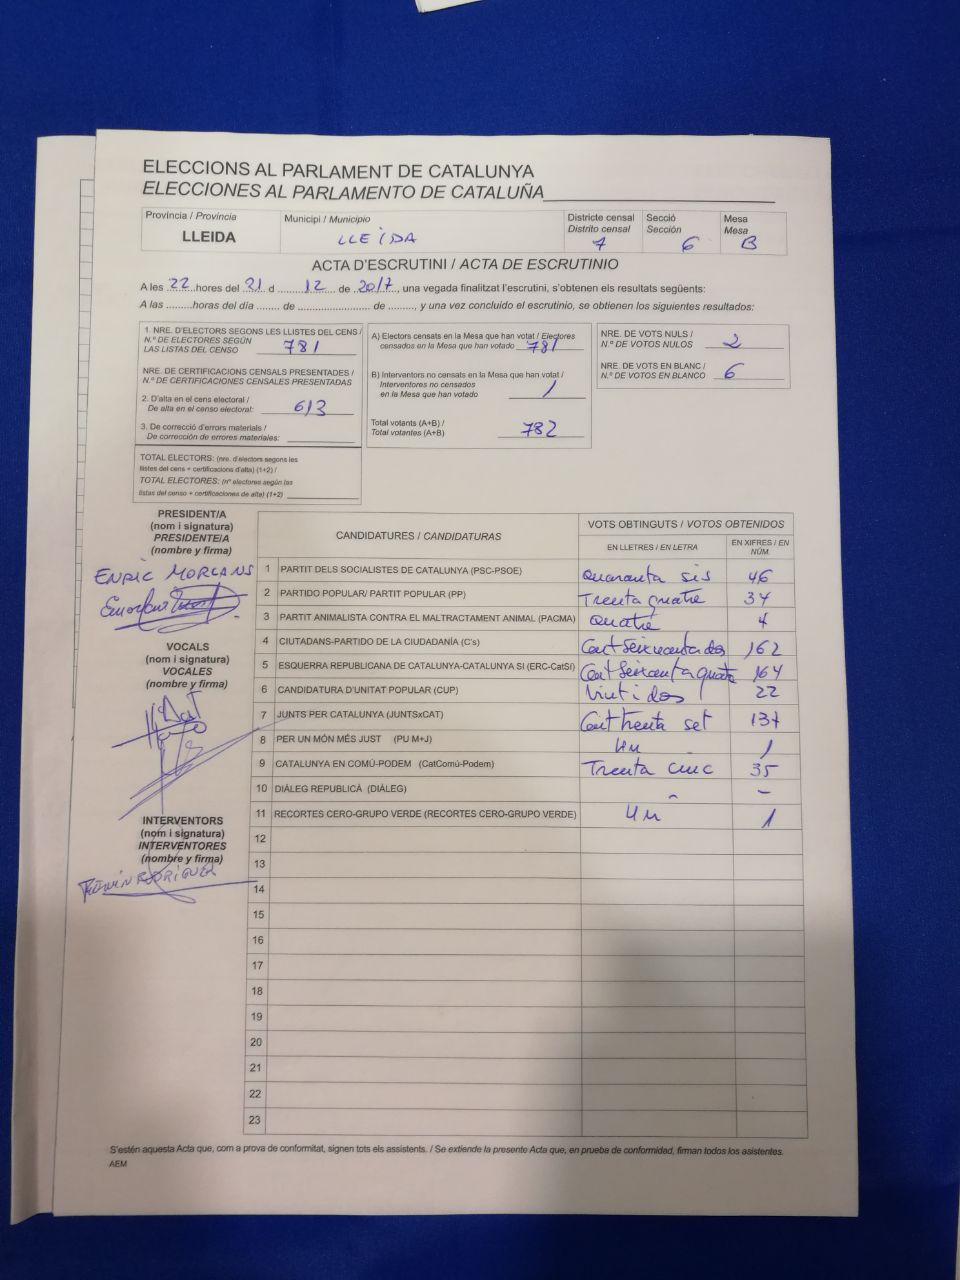 ELECCIONS AL PARLAMENT DE CATALUNYA
ELECCIONES AL PARLAMENTO DE CATALUÑA
Província / Provincia
LLEIDA
Municipi / Municipio
LLEIDA
Districte censal
Distrito censal
7
Secció
Sección
6
Mesa
Mesa
B
ACTA D'ESCRUTINI / ACTA DE ESCRUTINIO
A les 22 hores del 21 d 12 de 2017, una vegada finalitzat l'escrutini, s'obtenen els resultats següents:
A las .........horas del día ........ de .......................... de ........, y una vez concluido el escrutinio, se obtienen los siguientes resultados:
1. NRE. D'ELECTORS SEGONS LES LLISTES DEL CENS /
N.º DE ELECTORES SEGÚN
LAS LISTAS DEL CENSO 781
NRE. DE CERTIFICACIONS CENSALS PRESENTADES /
N.º DE CERTIFICACIONES CENSALES PRESENTADAS
2. D'alta en el cens electoral /
De alta en el censo electoral: 613
3. De correcció d'errors materials /
De corrección de errores materiales:
TOTAL ELECTORS: (nre. d'electors segons les
llistes del cens + certificacions d'alta) (1+2) /
TOTAL ELECTORES: (nº electores según las
listas del censo + certificaciones de alta) (1+2)
A) Electors censats en la Mesa que han votat / Electores
censados en la Mesa que han votado 781
B) Interventors no censats en la Mesa que han votat /
Interventores no censados
en la Mesa que han votado 1
Total votants (A+B) /
Total votantes (A+B) 782
NRE. DE VOTS NULS /
N.º DE VOTOS NULOS 2
NRE. DE VOTS EN BLANC /
N.º DE VOTOS EN BLANCO 6
PRESIDENT/A
(nom i signatura)
PRESIDENTE/A
(nombre y firma)
ENRIC MORLANS
VOCALS
(nom i signatura)
VOCALES
(nombre y firma)
INTERVENTORS
(nom i signatura)
INTERVENTORES
(nombre y firma)
RODRIGUEZ
CANDIDATURES / CANDIDATURAS
VOTS OBTINGUTS / VOTOS OBTENIDOS
EN LLETRES / EN LETRA
EN XIFRES / EN NÚM.
1 PARTIT DELS SOCIALISTES DE CATALUNYA (PSC-PSOE) Quaranta sis 46
2 PARTIDO POPULAR/ PARTIT POPULAR (PP) Trenta quatre 34
3 PARTIT ANIMALISTA CONTRA EL MALTRACTAMENT ANIMAL (PACMA) quatre 4
4 CIUTADANS-PARTIDO DE LA CIUDADANÍA (C's) Cent seixanta dos 162
5 ESQUERRA REPUBLICANA DE CATALUNYA-CATALUNYA SI (ERC-CatSI) Cent seixanta quatre 164
6 CANDIDATURA D'UNITAT POPULAR (CUP) Vint i dos 22
7 JUNTS PER CATALUNYA (JUNTSxCAT) Cent trenta set 137
8 PER UN MÓN MÉS JUST (PU M+J) Un 1
9 CATALUNYA EN COMÚ-PODEM (CatComú-Podem) Trenta cinc 35
10 DIÀLEG REPUBLICÀ (DIÀLEG) - -
11 RECORTES CERO-GRUPO VERDE (RECORTES CERO-GRUPO VERDE) Un 1
12
13
14
15
16
17
18
19
20
21
22
23
S'estén aquesta Acta que, com a prova de conformitat, signen tots els assistents. / Se extiende la presente Acta que, en prueba de conformidad, firman todos los asistentes.
AEM